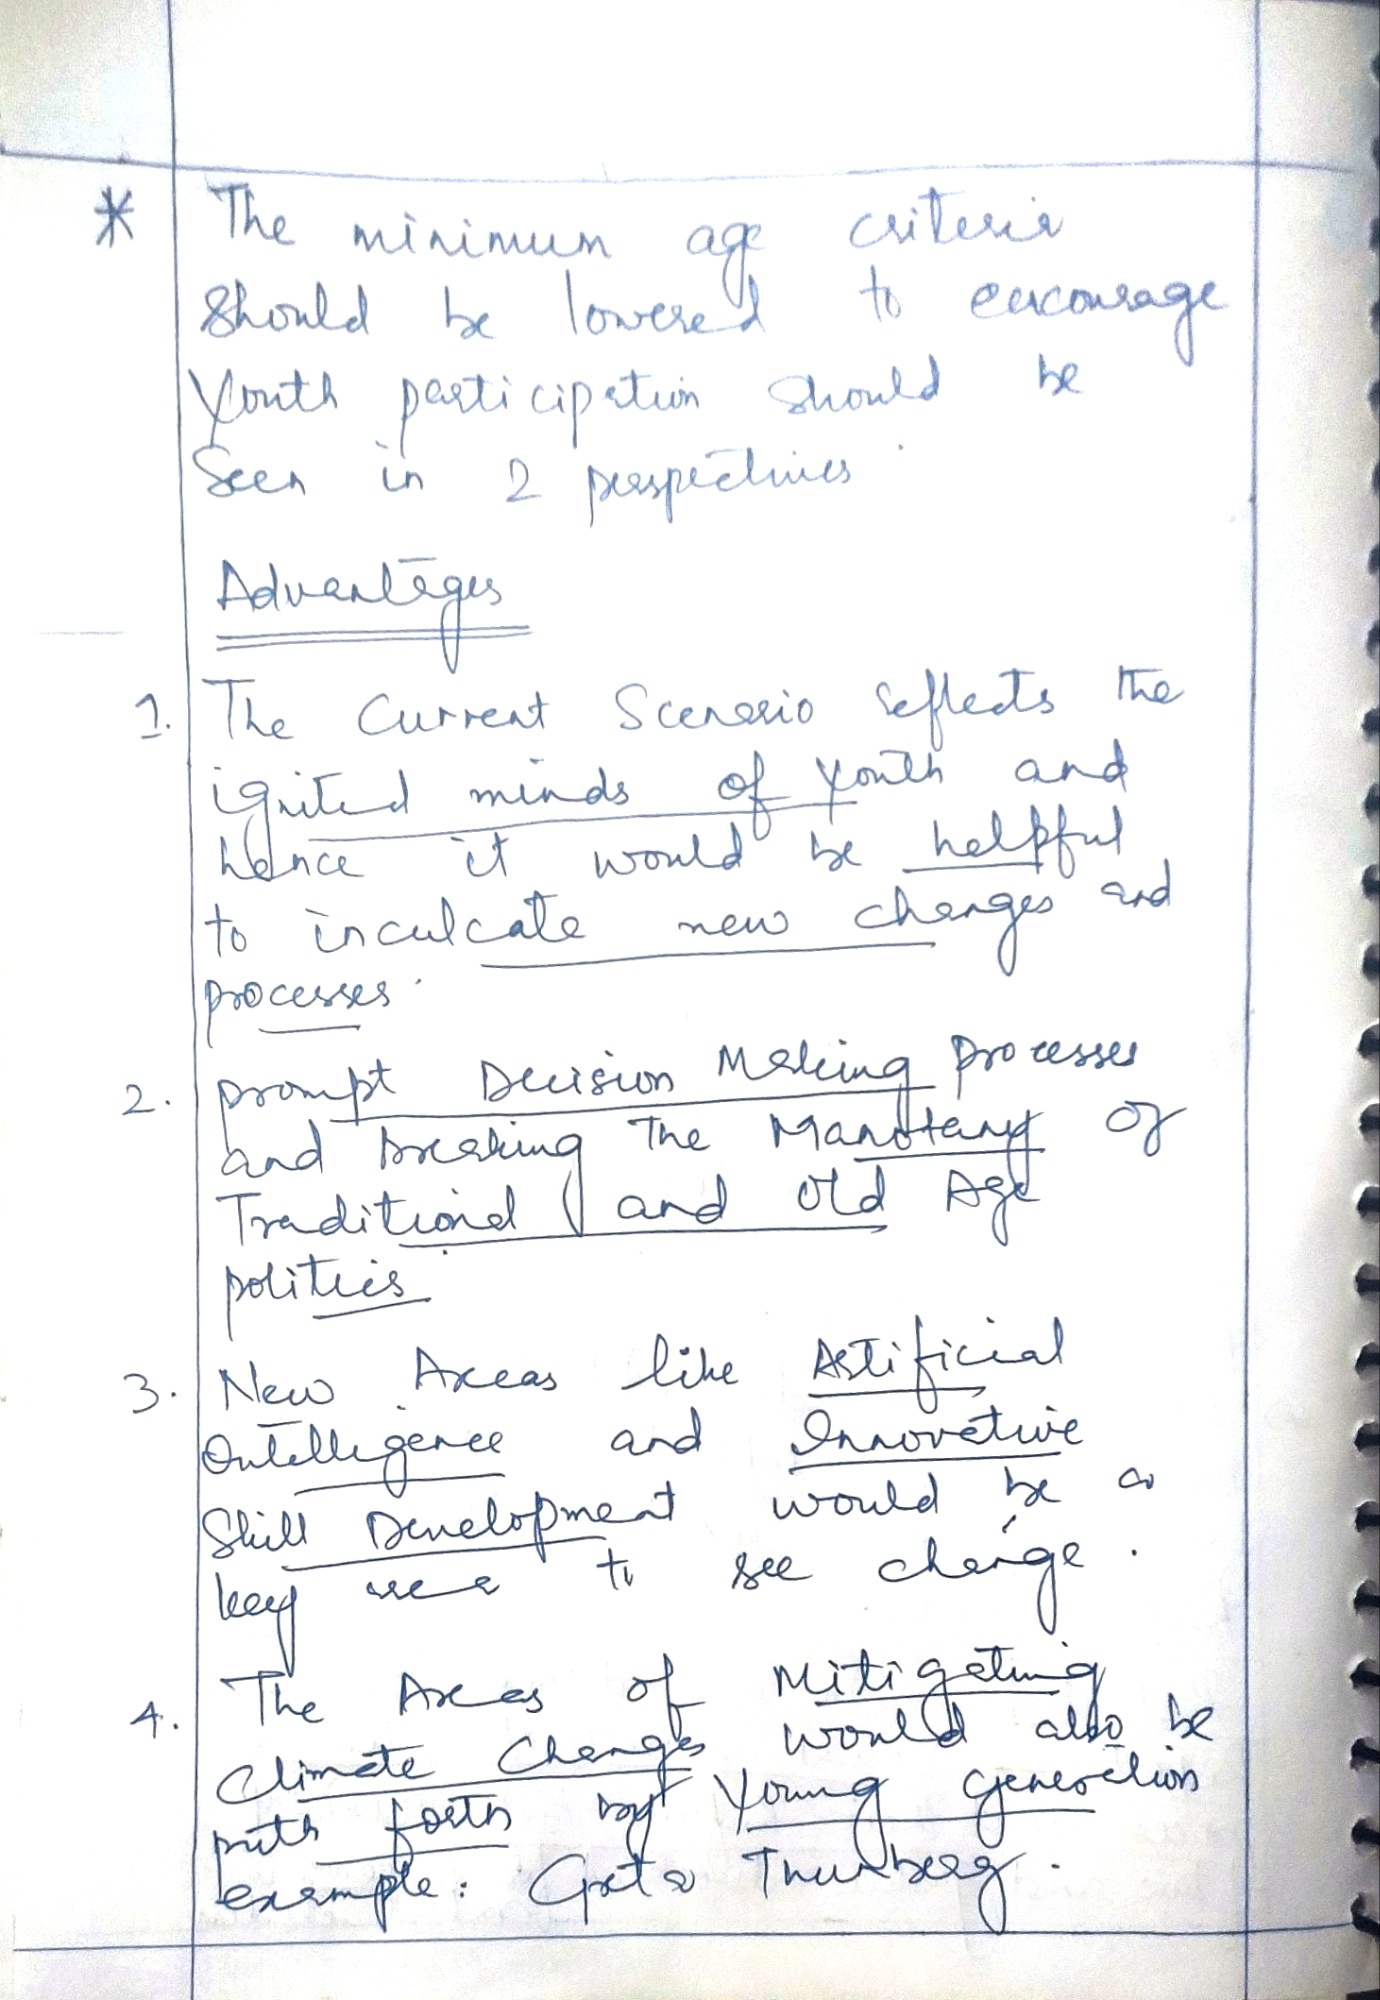 * The minimum age criteria
should be lowered to encourage
Youth participation should be
Seen in 2 perspectives.
Advantages
1. The Current Scenario reflects the
ignited minds of youth and
hence it would be helpful
to inculcate new changes and
processes.
2. prompt Decision Making processes
and breaking the Manotany of
Traditional and old Age
politics.
3. New Areas like Artificial
Intelligence and Innovative
Skill Development would be a
key area to see change.
4. The Areas of Mitigating
Climate Changes would also be
puth forth by Young generation
example: Greta Thunberg.